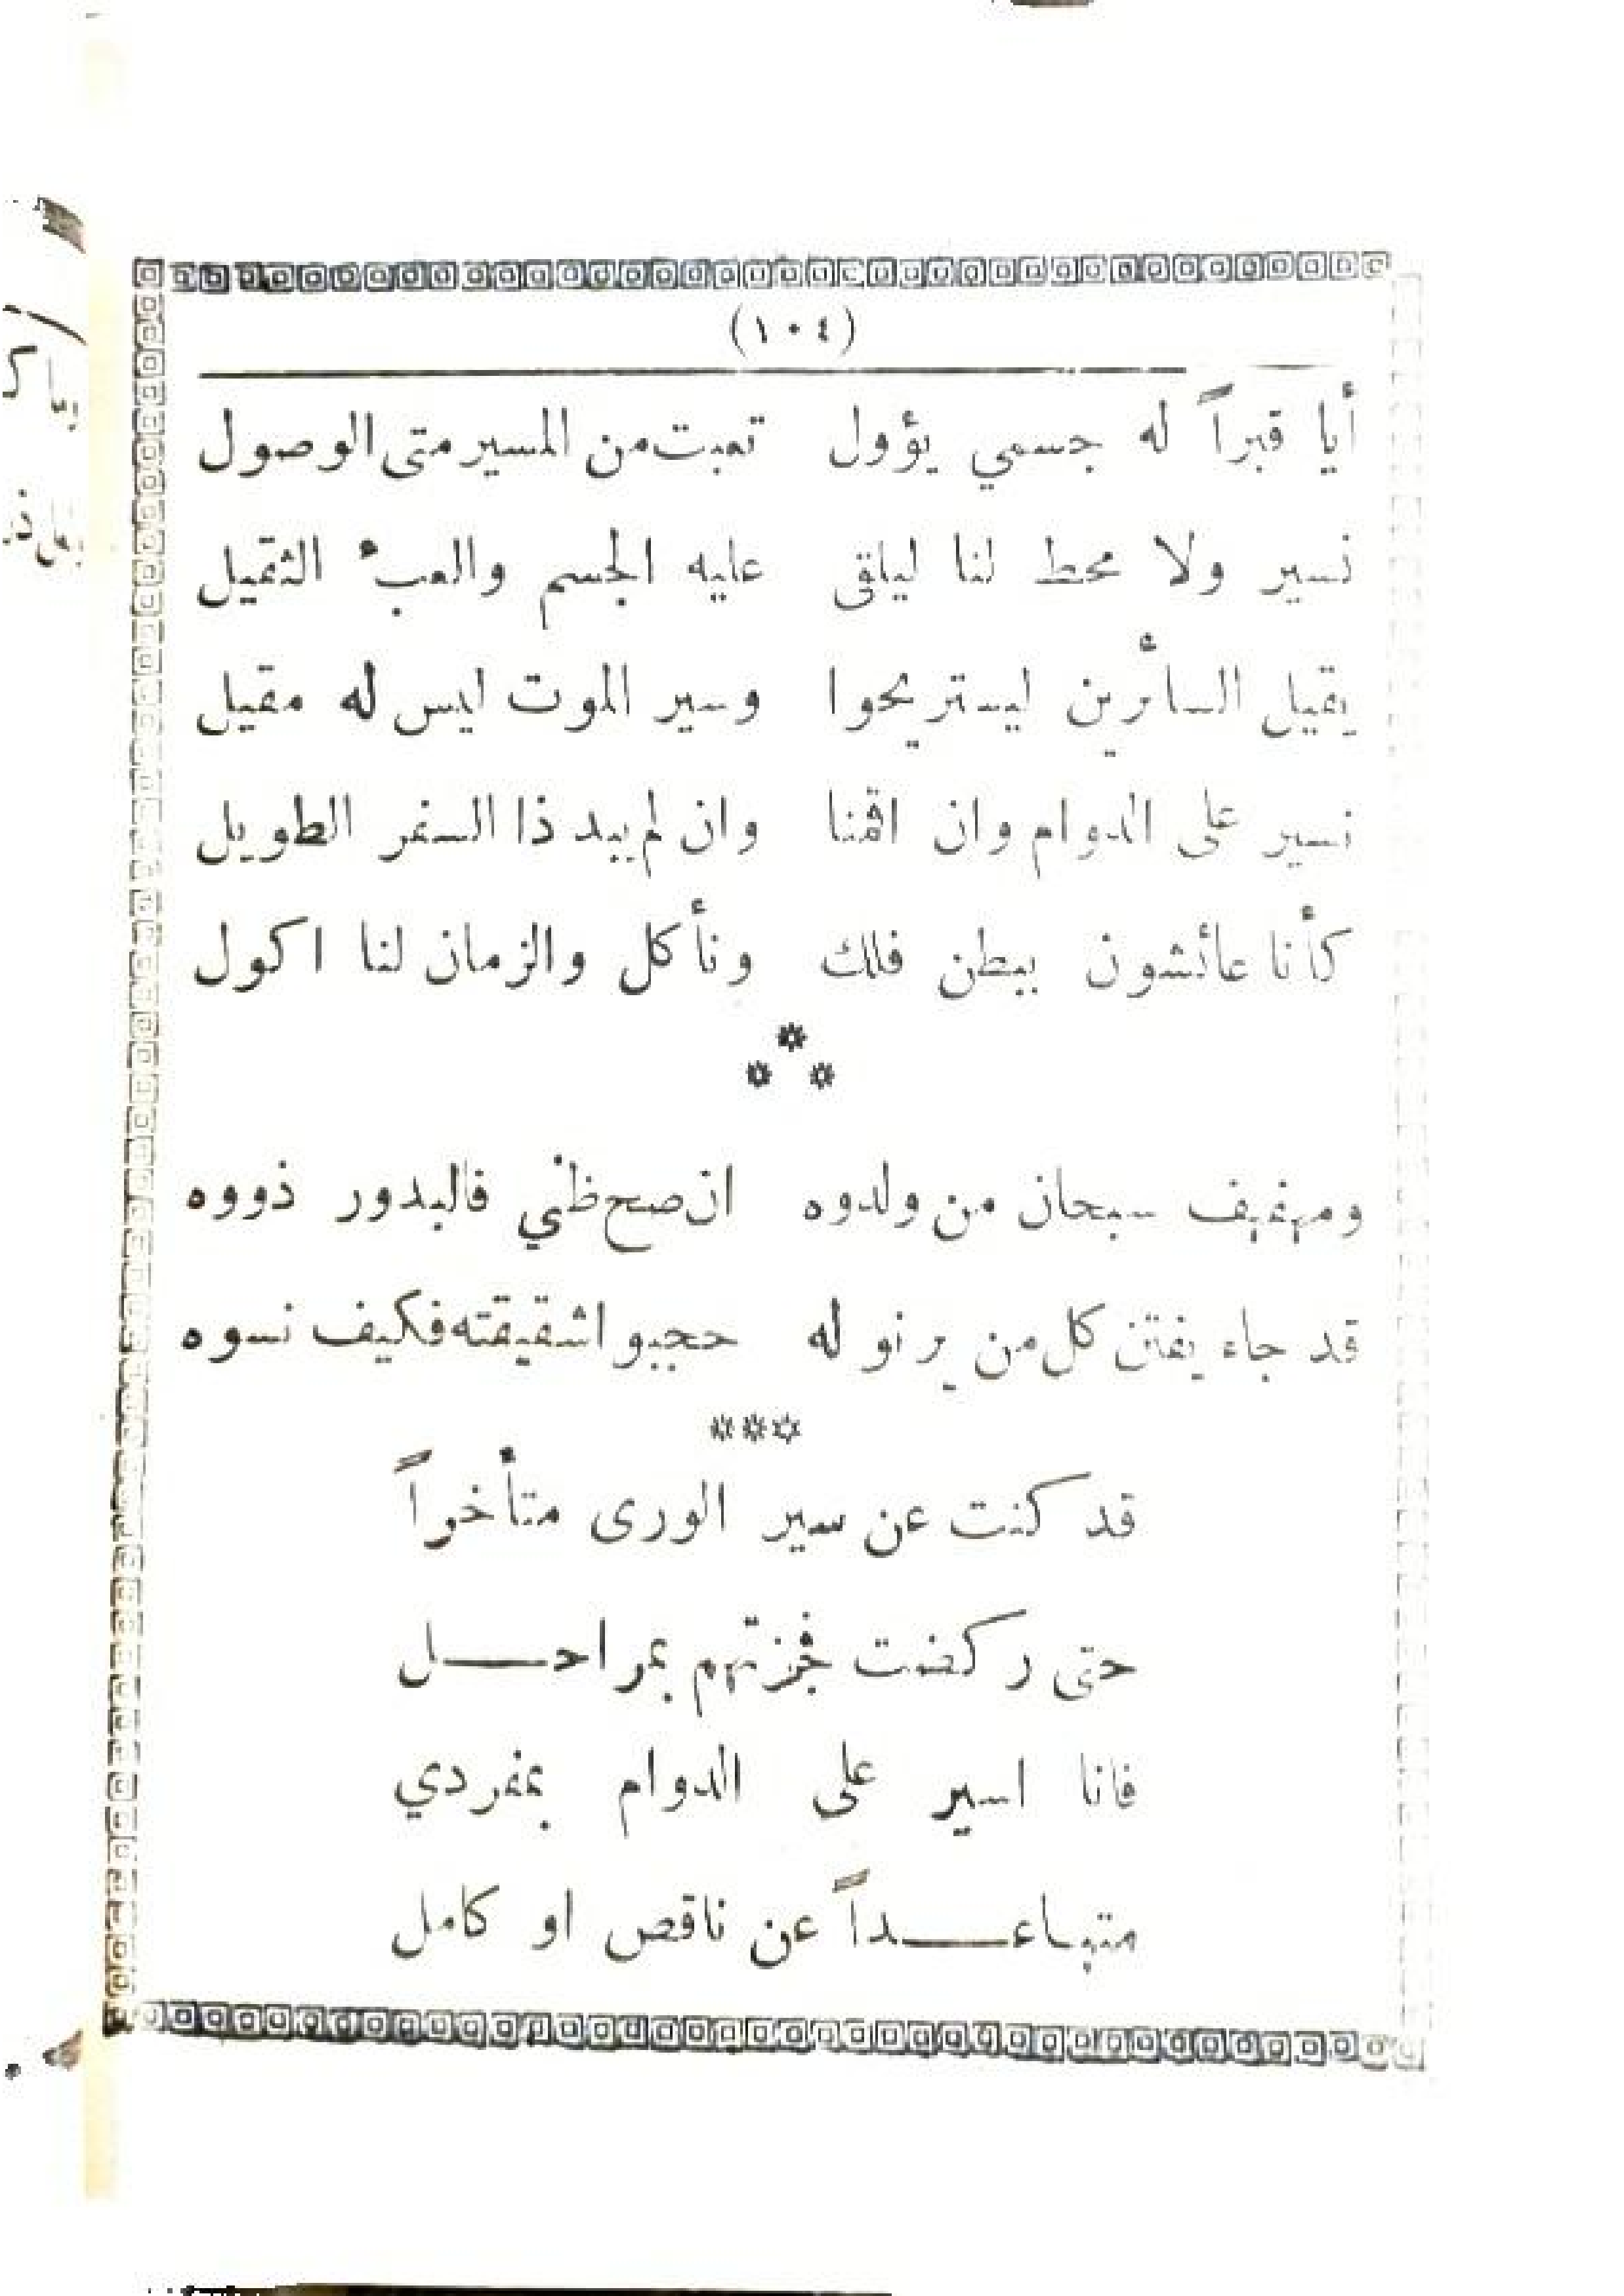 (١٠٤)
أيا قبراً له جسمي يؤول تعبت من المسير متى الوصول
نسير ولا محط لنا ليلقى عليه الجسم والعبء الثقيل
يقيل السائرين ليستريحوا وسير الموت ليس له مقيل
نسير على الدوام وان اقمنا وان لم يبد ذا السفر الطويل
كأنا عائشون ببطن فلك ونأكل والزمان لنا اكول
***
ومهفهف سبحان من ولدوه ان صح ظني فالبدور ذووه
قد جاء يفتن كل من يرنو له حجبوا شقيقته فكيف نسوه
***
قد كنت عن سير الورى متأخراً
حتى ركضت فجزتهم بمراحـــل
فانا اسير على الدوام بمفردي
متبـاعـــداً عن ناقص او كامل